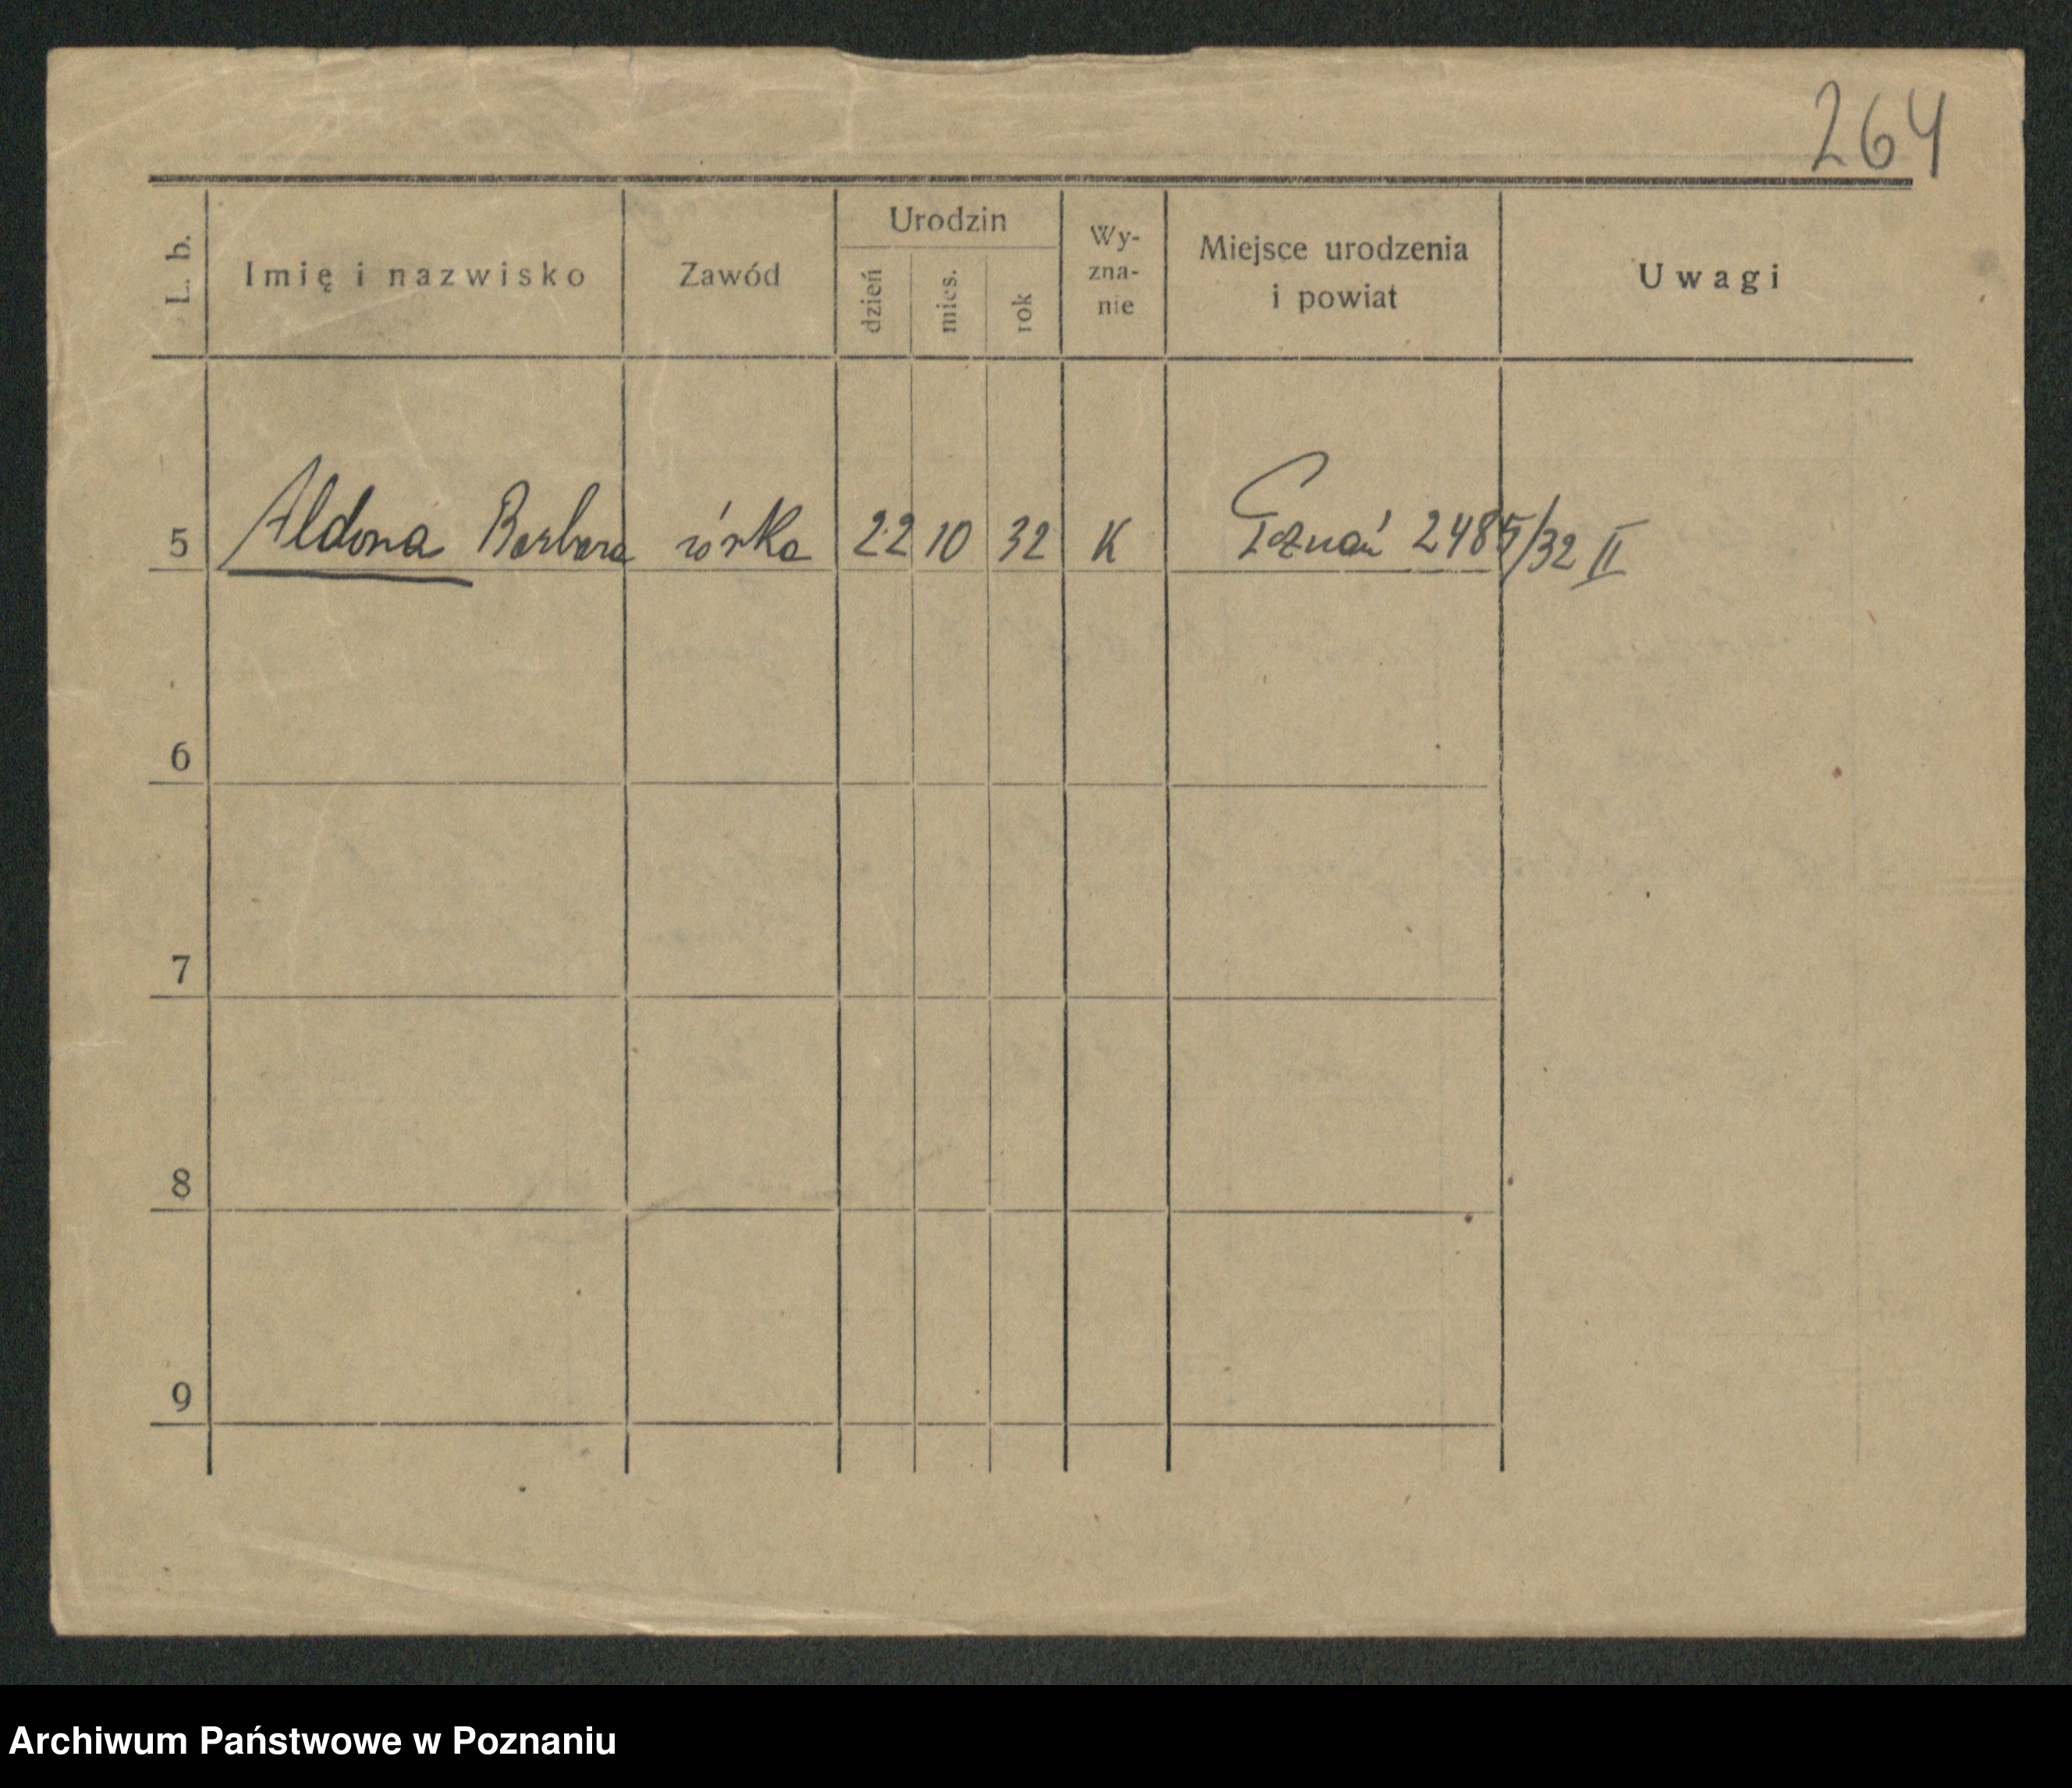 264
L. b.
Imię i nazwisko
Zawód
Urodzin
dzień
mies.
rok
Wy-
zna-
nie
Miejsce urodzenia
i powiat
Uwagi
5 Aldona Barbara córka 22 10 32 K Poznań 2485/32 II
6
7
8
9
Archiwum Państwowe w Poznaniu